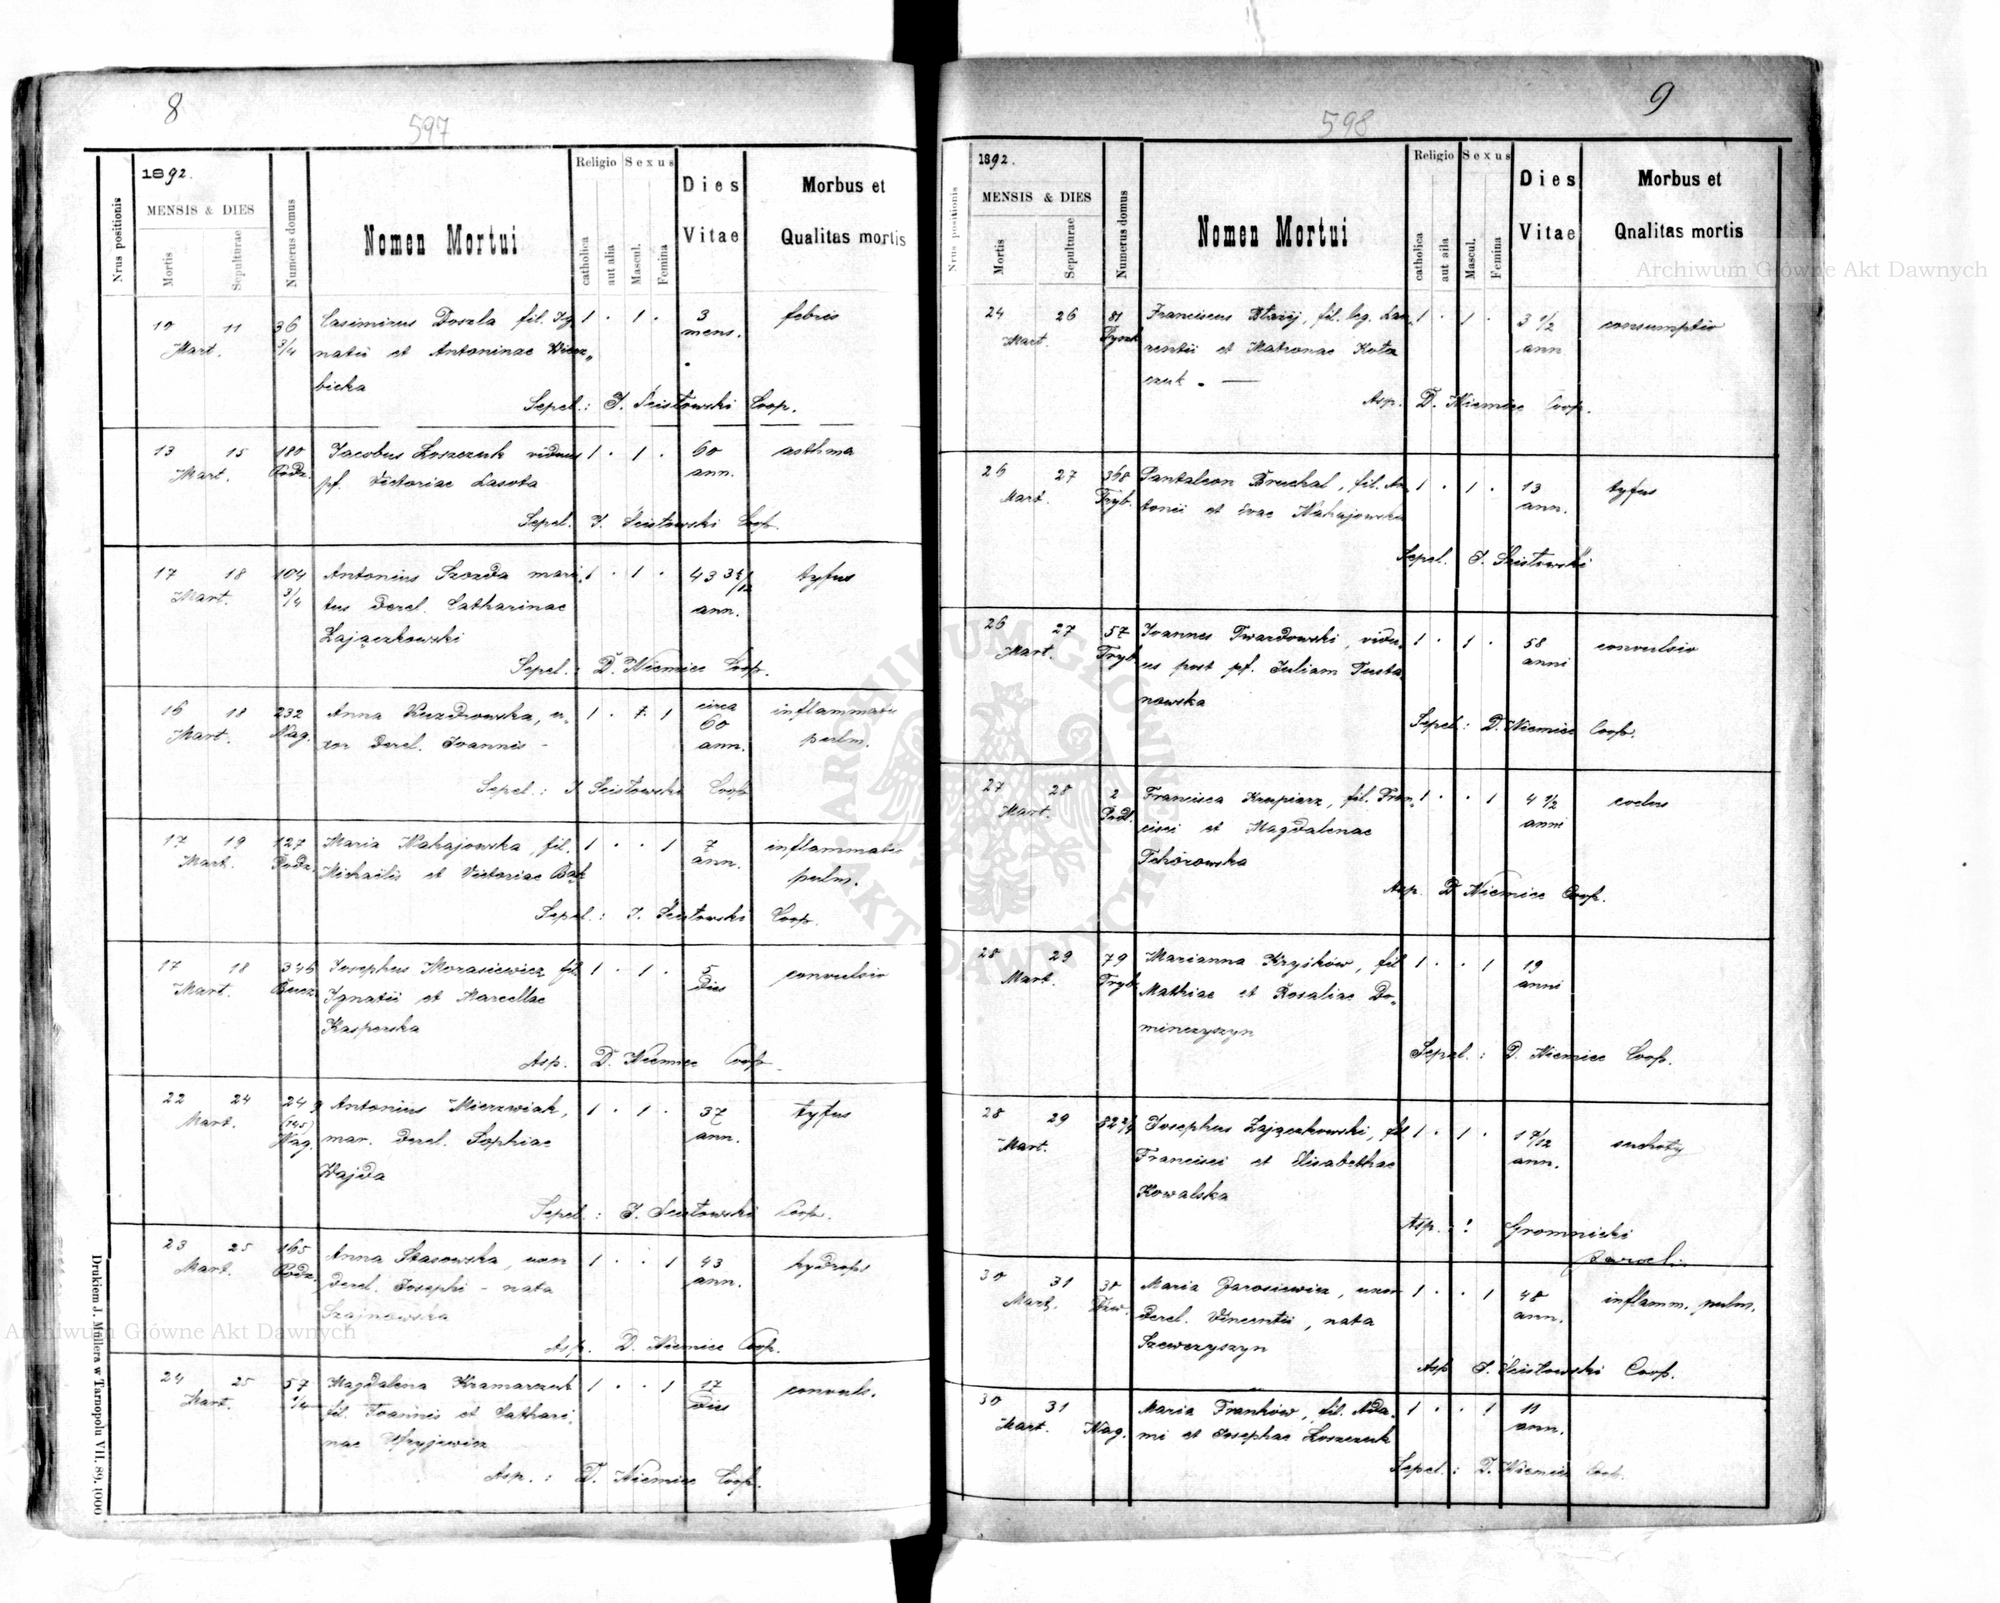 8
597
Nrus positionis
1892.
MENSIS & DIES
Mortis
Sepulturae
Numerus domus
Nomen Mortui
Religio
catholica
aut alia
Sexus
Mascul.
Femina
Dies
Vitae
Morbus et
Qualitas mortis
10 11 36 Casimirus Doszla fil. Ig 1 . 1 . 3 febris
Mart. 3/4 natii et Antoninae Wierz„ mens.
bicka
Sepel.: I. Scisłowski Coop.
13 15 180 Jacobus Łoszczuk viduus 1 . 1 . 60 asthma
Mart. Podz. pf. Victoriae Lasota ann.
Sepel. I. Scisłowski Coop.
17 18 104 Antonius Szozda mari„ 1 . 1 . 43 tyfus
Mart. 3/4 tus derel. Catharinae ann.
Zajączkowski
Sepel.: D. Niemiec Coop.
16 18 232 Anna Kuzdrowska, u„ 1 . 1 circa inflammatio
Mart. Nag. xor derel. Ioannis - 60 pulm.
ann.
Sepel.: I Scisłowski Coop
17 19 127 Maria Nahajowska, fil. 1 . . 1 7 inflammatio
Mart. Podz. Michaelis et Victoriae Bąk ann. pulm.
Sepel.: I. Scisłowski Coop.
17 18 346 Iosephus Morasiewicz fil. 1 . 1 . 5 convulsio
Mart. Bucz. Ignatii et Marcellae dies
Kasperska
Asp. D. Niemiec Coop.
22 24 249 Antonius Mierzwiak, 1 . 1 . 37 tyfus
Mart. (145) mar. derel. Sophiae ann.
Nag. Wajda
Sepel.: I. Scisłowski Coop.
23 25 165 Anna Stasowska, uxor 1 . . 1 43 hydrops
Mart. Podz. derel. Iosephi - nata ann.
Szajnowska
Asp. D. Niemiec Coop.
24 25 57 Magdalena Kramarczuk 1 . . 1 17 convuls.
Mart. 1/4 fil. Ioannis et Cathari dies
nae
Asp.: D. Niemiec Coop.
Drukiem J. Müllera w Tarnopolu VII. 89. 1000
9
598
Nrus positionis
1892.
MENSIS & DIES
Mortis
Sepulturae
Numerus domus
Nomen Mortui
Religio
catholica
aut aila
Sexus
Mascul.
Femina
Dies
Vitae
Morbus et
Qnalitas mortis
24 26 81 Franciscus Błażij, fil. leg. Lau„ 1 . 1 . 3 1/2 consumptio
Mart. rentii et Matronae Kota ann
czuk . —
Asp. D. Niemiec Coop.
26 27 368 Pantaleon Bruchal, fil. An„ 1 . 1 . 13 tyfus
Mart. Tryb. tonii et Evae Nahajowska ann.
Sepel. I. Scisłowski
26 27 57 Ioannes Twardowski, vidu„ 1 . 1 . 58 convulsio
Mart. Tryb. us post pf. Iuliam Tusta anni
nowska
Sepel.: D. Niemiec Coop.
27 28 2 Francisca Krupiarz, fil. Fran„ 1 . . 1 4 1/2
Mart. Podl. cisci et Magdalenae anni
Tchórowska
Asp. D Niemiec Coop.
28 29 79 Marianna Kryśków, fil 1 . . 1 19
Mart. Tryb. Mathiae et Rosaliae Do„ anni
minczyszyn
Sepel.: D. Niemiec Coop.
28 29 82 Iosephus Zajączkowski, fil 1 . 1 . 1 7/12 suchoty
Mart. Francisci et Elisabethae ann.
Kowalska
Asp. : ! Gromnicki
30 31 30 Maria Jarosiewicz, uxor 1 . . 1 48 inflamm. pulm.
Mart. derel. Vincentii, nata ann.
Szewczyszyn
Asp I. Scisłowski Coop.
30 31 Maria Franków, fil. Ada„ 1 . . 1 11
Mart. Nag. mi et Iosephae Łoszczuk ann.
Sepel.: D. Niemiec Coop.
Archiwum Główne Akt Dawnych
Archiwum Główne Akt Dawnych
ARCHIWUM GŁÓWNE AKT DAWNYCH